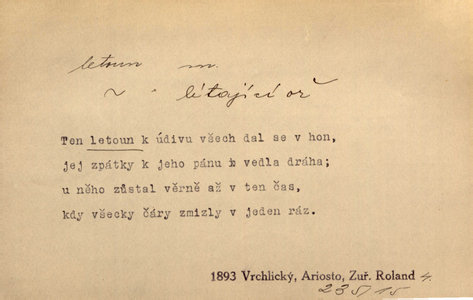 letoun m.
~ " létající oř
Ten letoun k údivu všech dal se v hon,
jej zpátky k jeho pánu vedla dráha;
u něho zůstal věrně až v ten čas,
kdy všecky čáry zmizly v jeden ráz.
1893 Vrchlický, Ariosto, Zuř. Roland 4.
235/15